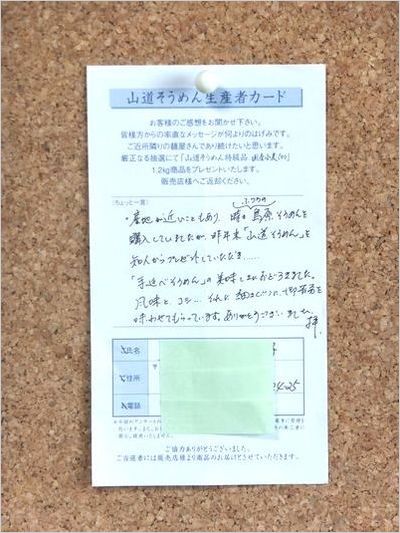 山道そうめん生産者カード
お客様のご感想をお聞かせ下さい。
皆様方からの率直なメッセージが何よりのはげみです。
ご近所隣りの麺屋さんであり続けたいと思います。
厳正なる抽選にて「山道そうめん特級品
1.2kg商品をプレゼントいたします。
販売店様へご返却ください。
ちょっと一言
ふつうの
・産地が近いこともあり、時々島原そうめんを
購入していましたが、昨年末「山道そうめん」を
知人からプレゼントしていただき……
「手延べそうめん」の美味しさにおどろきました。
風味と、コシ… それに
味わせてもらっています。ありがとうございました。
拝
氏名
住所
24-25
電話
ご協力ありがとうございました。
ご当選者には販売店様より商品のお届けとさせていただきます。